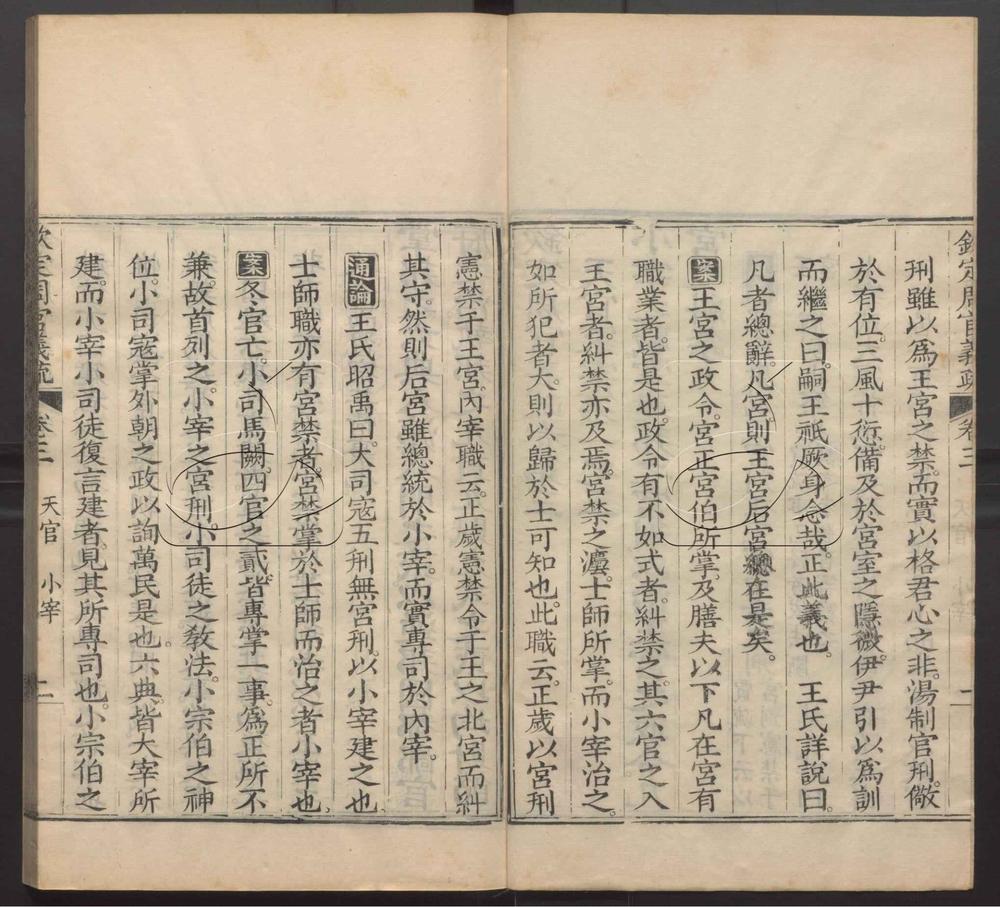 欽定周官義疏 卷三 二
刑雖以爲王宮之禁而實以格君心之非湯制官刑儆
於有位三風十愆備及於宮室之隱微伊尹引以爲訓
而繼之曰嗣王祇厥身念哉正此義也。 王氏詳說曰
凡者總辭凡宮則王宮后宮總在是矣。
案王宮之政令宮正宮伯所掌及膳夫以下凡在宮有
職業者皆是也政令有不如式者糾禁之其六官之入
王宮者糾禁亦及焉宮禁之灋士師所掌而小宰治之
如所犯者大則以歸於士可知也此職云正歲以宮刑
憲禁于王宮內宰職云正歲憲禁令于王之北宮而糾
其守然則后宮雖總統於小宰而實專司於內宰。
通論王氏昭禹曰大司寇五刑無宮刑以小宰建之也
士師職亦有宮禁者宮禁掌於士師而治之者小宰也
案冬官亡小司馬闕四官之貳皆專掌一事爲正所不
兼故首列之小宰之宮刑小司徒之敎法小宗伯之神
位小司寇掌外朝之政以詢萬民是也六典皆大宰所
建而小宰小司徒復言建者見其所專司也小宗伯之
欽定周官義疏 卷三 天官 小宰 二